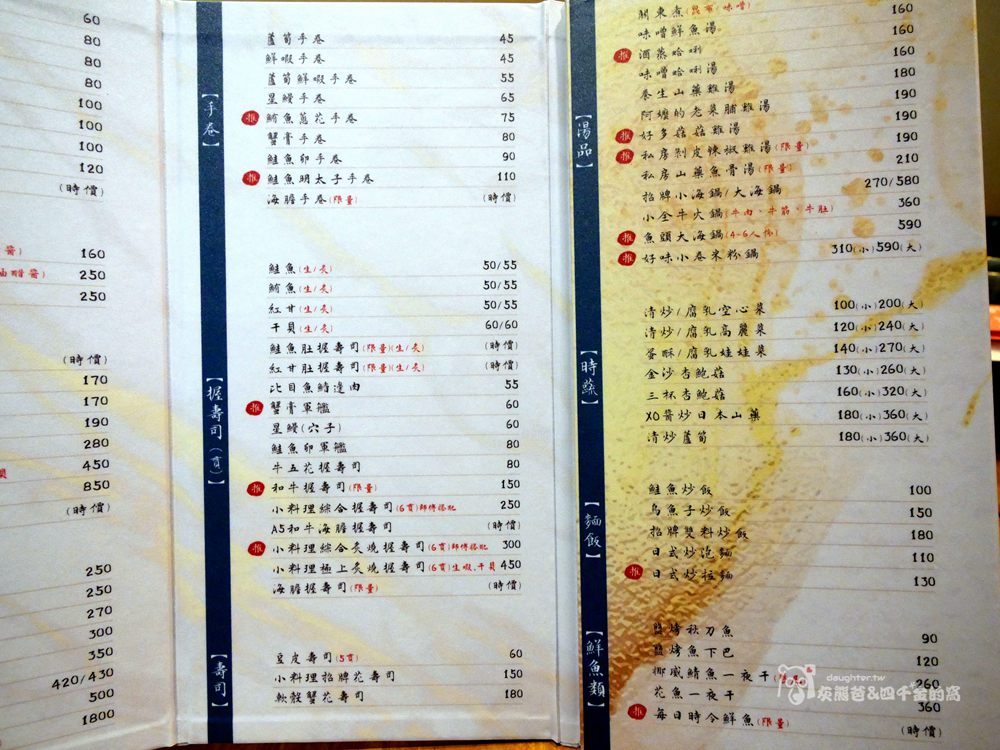 60
80
80
80
100
100
100
120
(時價)
醬) 160
油醋醬) 250
250
(時價)
170
170
190
280
450
850
(時價)
250
250
270
300
350
420/430
500
1800
【手卷】
蘆筍手卷 45
鮮蝦手卷 45
蘆筍鮮蝦手卷 55
星鰻手卷 65
推 鮪魚蔥花手卷 75
蟹膏手卷 80
鮭魚卵手卷 90
推 鮭魚明太子手卷 110
海膽手卷(限量) (時價)
【握壽司(貫)】
鮭魚(生/炙) 50/55
鮪魚(生/炙) 50/55
紅甘(生/炙) 50/55
干貝(生/炙) 60/60
鮭魚肚握壽司(限量)(生/炙) (時價)
紅甘肚握壽司(限量)(生/炙) (時價)
比目魚鰭邊肉 55
推 蟹膏軍艦 60
星鰻(穴子) 60
鮭魚卵軍艦 80
牛五花握壽司 80
推 和牛握壽司(限量) 150
小料理綜合握壽司(6貫)師傅搭配 250
A5和牛海膽握壽司 (時價)
推 小料理綜合炙燒握壽司(6貫)師傅搭配 300
小料理極上炙燒握壽司(6貫)生蝦、干貝 450
海膽握壽司(限量) (時價)
【壽司】
豆皮壽司(5貫) 60
小料理招牌花壽司 150
軟殼蟹花壽司 180
【湯品】
關東煮(昆布/味噌) 160
味噌鮮魚湯 160
推 酒蒸蛤蜊 160
味噌蛤蜊湯 180
養生山藥雞湯 190
阿嬤的老菜脯雞湯 190
推 好多菇菇雞湯 190
推 私房剝皮辣椒雞湯(限量) 210
私房山藥魚骨湯(限量)
招牌小海鍋/大海鍋 270/580
小全牛火鍋(牛肉、牛筋、牛肚) 360
推 魚頭大海鍋(4-6人份) 590
推 好味小卷米粉鍋 310(小)590(大)
【時蔬】
清炒/腐乳空心菜 100(小)200(大)
清炒/腐乳高麗菜 120(小)240(大)
蛋酥/腐乳娃娃菜 140(小)270(大)
金沙杏鮑菇 130(小)260(大)
三杯杏鮑菇 160(小)320(大)
XO醬炒日本山藥 180(小)360(大)
清炒蘆筍 180(小)360(大)
【麵飯】
鮭魚炒飯 100
烏魚子炒飯 150
招牌雙料炒飯 180
日式炒泡麵 110
推 日式炒拉麵 130
【鮮魚類】
鹽烤秋刀魚 90
鹽烤魚下巴 120
挪威鯖魚一夜干 260
花魚一夜干 360
推 每日時令鮮魚(限量) (時價)
daughter.tw
灰熊爸&四千金的窩